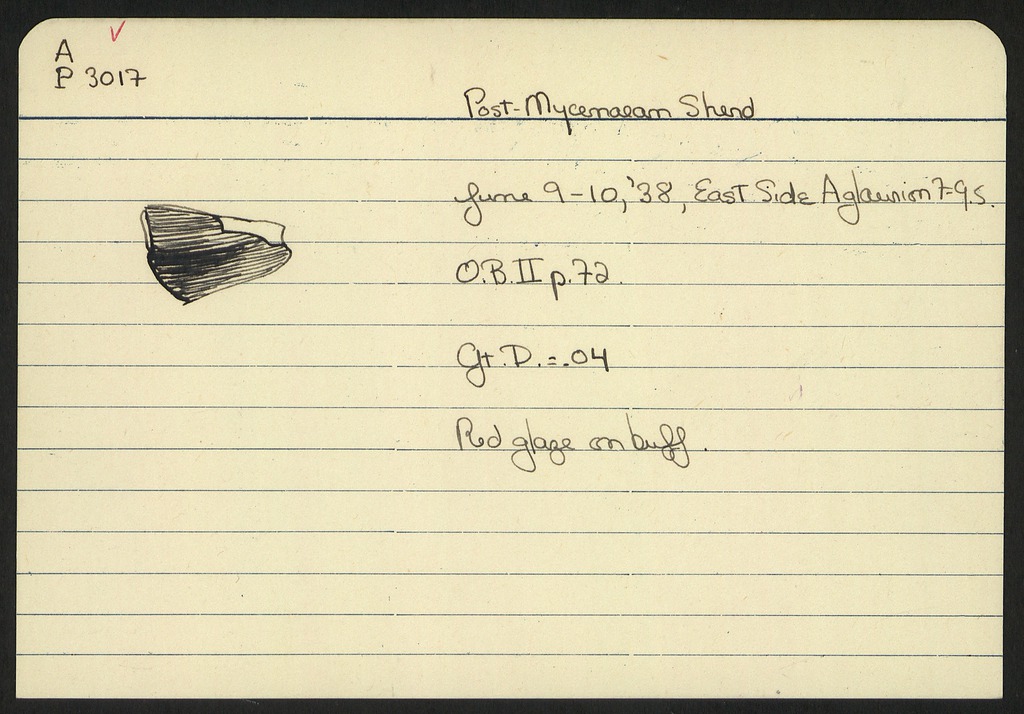 A
P 3017
Post-Mycenaean Sherd
June 9-10, '38, East Side Aglaurion 7-9.S.
O.B.II p.72.
Gt. D. = .04
Red glaze on buff.